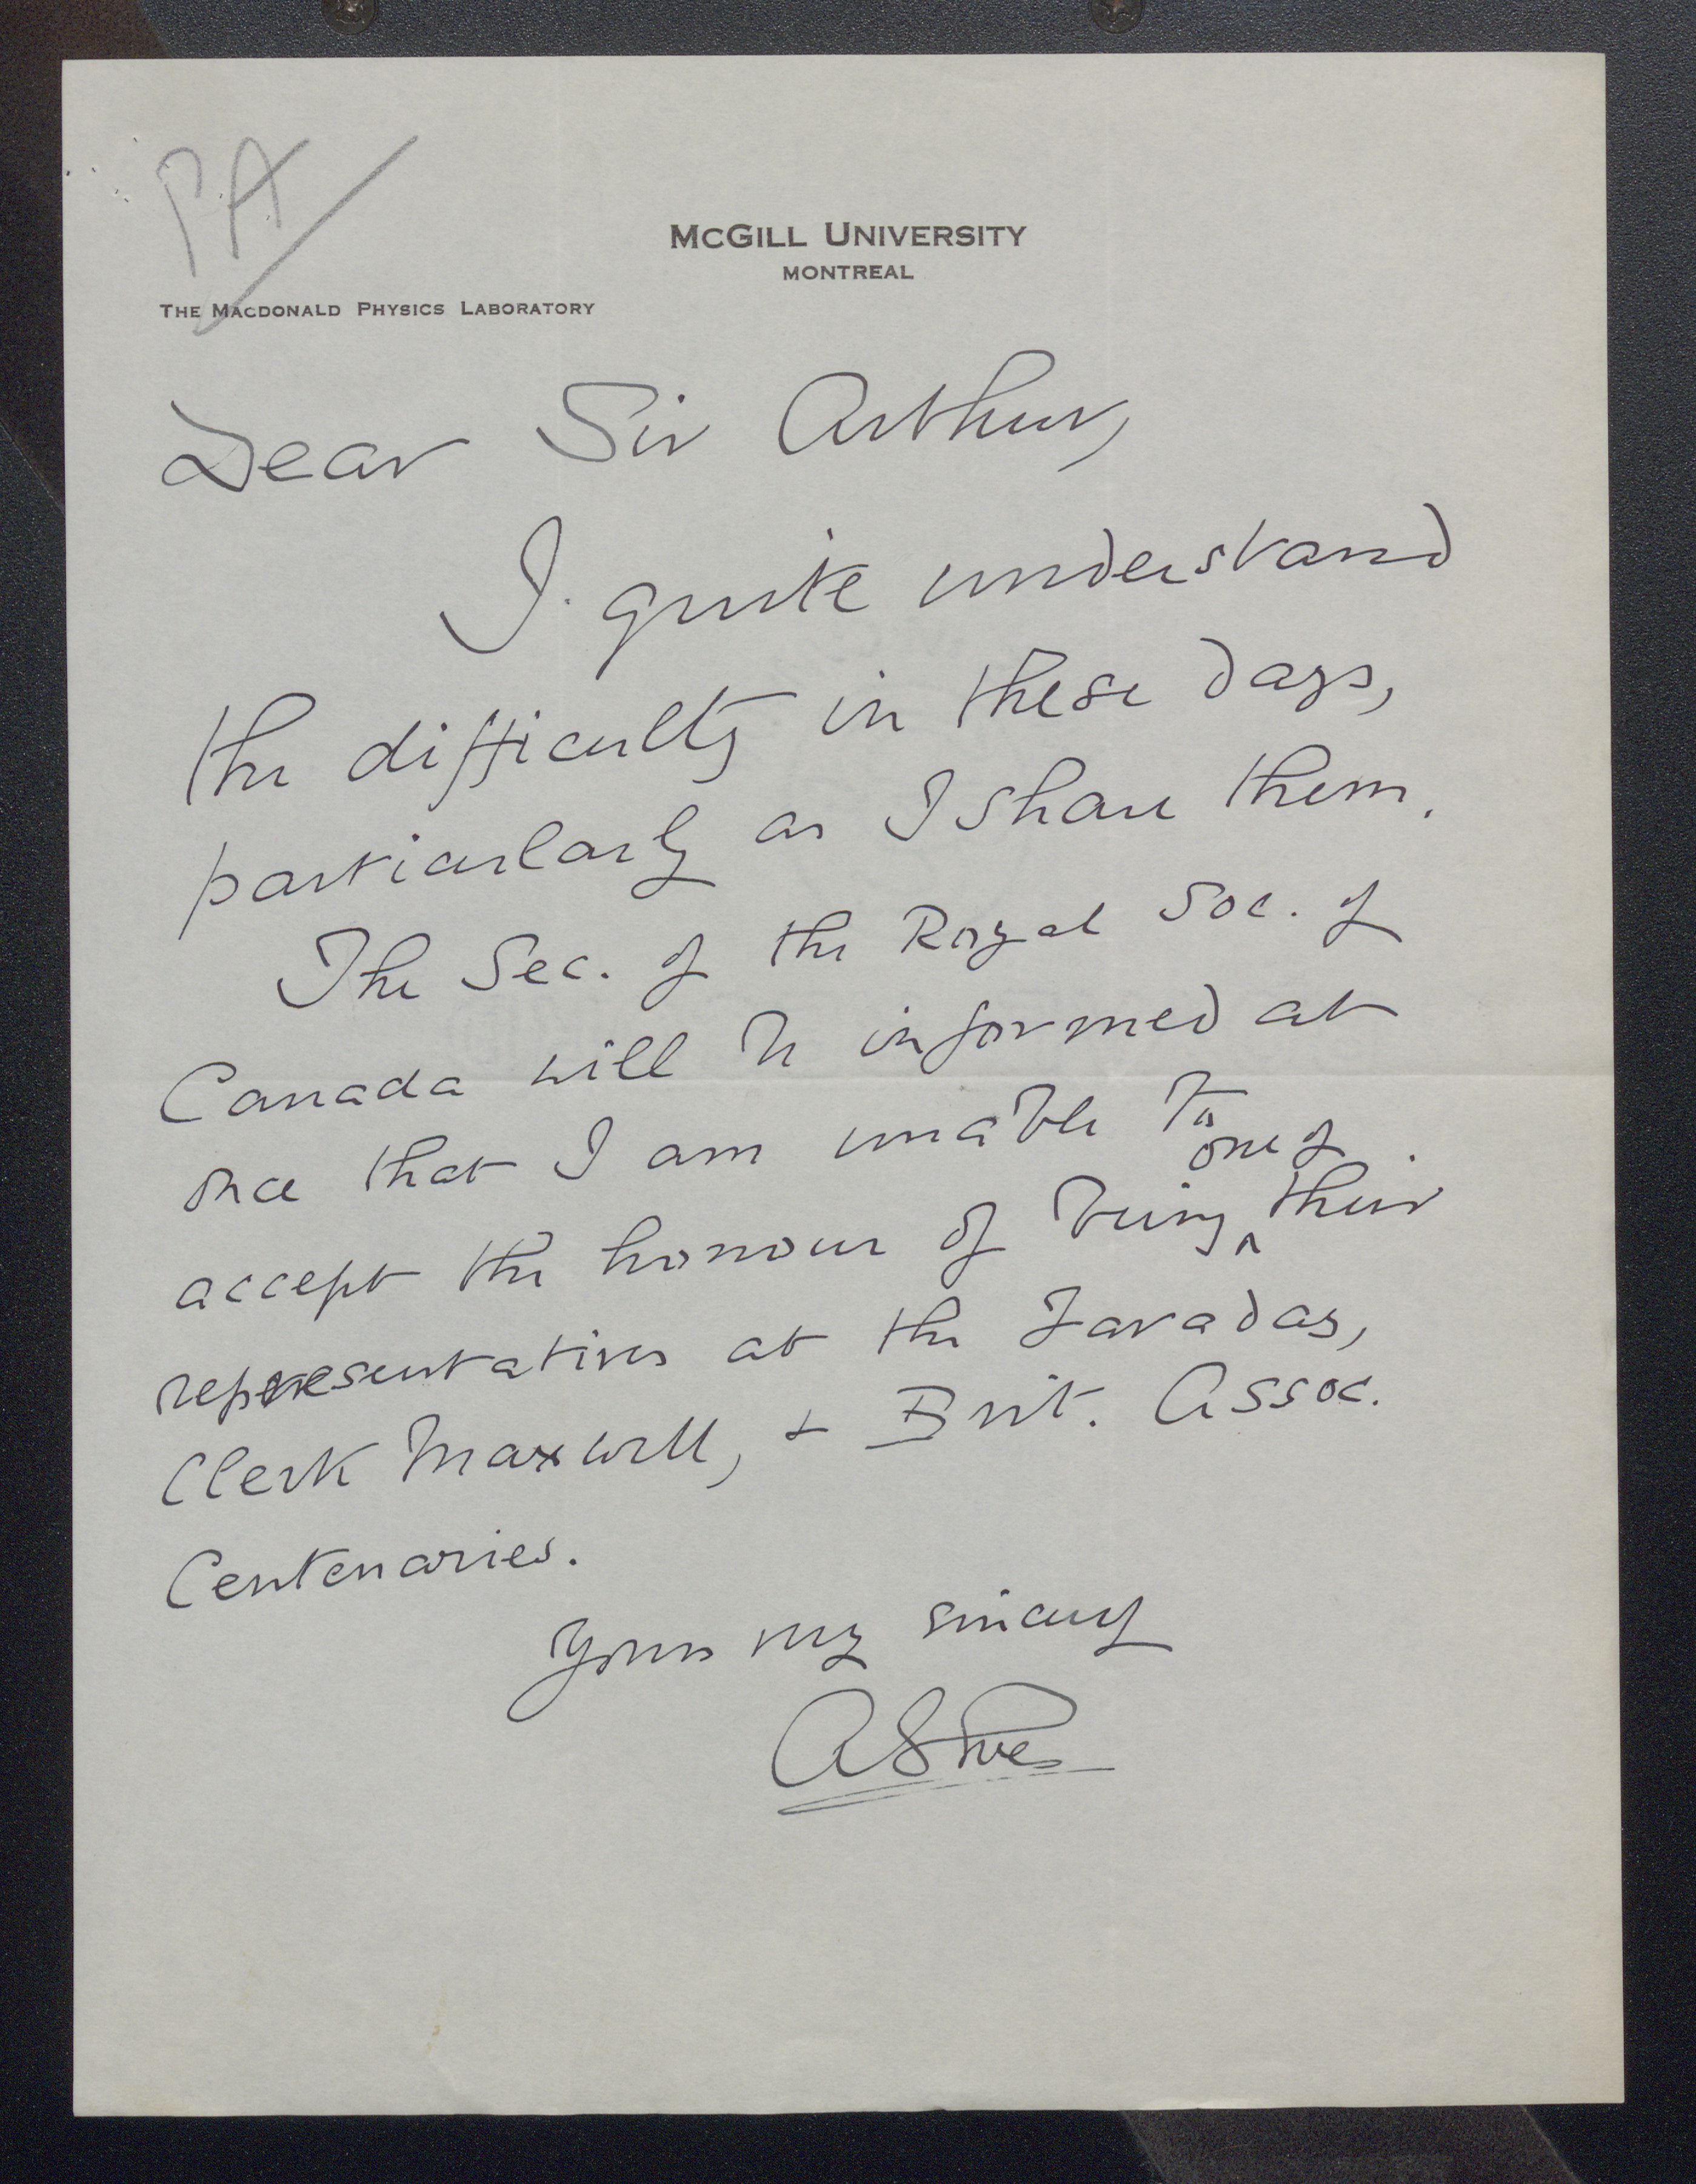 PA
McGILL UNIVERSITY
MONTREAL
THE MACDONALD PHYSICS LABORATORY
Dear Sir Arthur,
I quite understand
the difficulty in these days,
particularly as I share them.
The Sec. of the Royal Soc. of
Canada will be informed at
once that I am unable to
accept the honour of being one of their
representatives at the Faraday,
Clerk Maxwell, + Brit. Assoc.
Centenaries.
Yours very sincerely
AS Eve